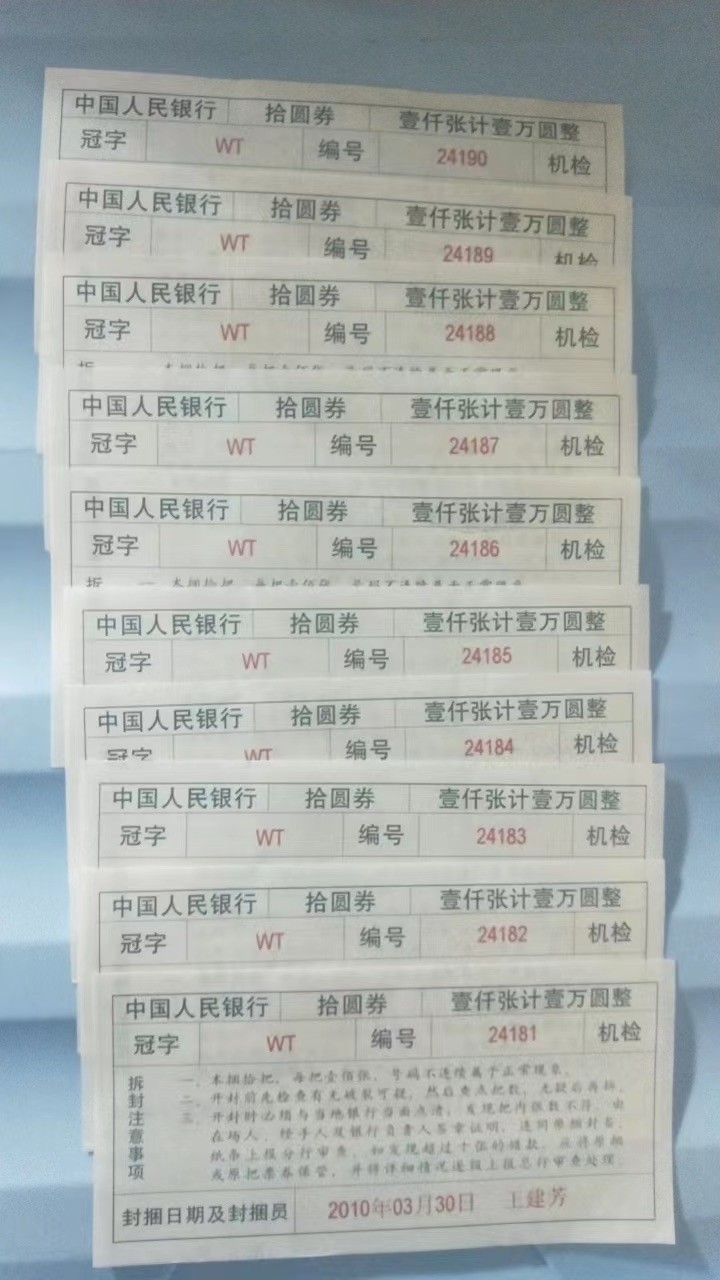 中国人民银行 拾圆券 壹仟张计壹万圆整
冠字 WT 编号 24190 机检
中国人民银行 拾圆券 壹仟张计壹万圆整
冠字 WT 编号 24189 机检
中国人民银行 拾圆券 壹仟张计壹万圆整
冠字 WT 编号 24188 机检
中国人民银行 拾圆券 壹仟张计壹万圆整
冠字 WT 编号 24187 机检
中国人民银行 拾圆券 壹仟张计壹万圆整
冠字 WT 编号 24186 机检
拆 一、本捆拾把,每把壹佰张,号码不连续属于正常现象
中国人民银行 拾圆券 壹仟张计壹万圆整
冠字 WT 编号 24185 机检
中国人民银行 拾圆券 壹仟张计壹万圆整
冠字 WT 编号 24184 机检
中国人民银行 拾圆券 壹仟张计壹万圆整
冠字 WT 编号 24183 机检
中国人民银行 拾圆券 壹仟张计壹万圆整
冠字 WT 编号 24182 机检
中国人民银行 拾圆券 壹仟张计壹万圆整
冠字 WT 编号 24181 机检
拆封注意事项
一、本捆拾把,每把壹佰张,号码不连续属于正常现象。
二、开封前先检查有无破裂可疑,然后查点把数,无疑后再拆。
三、开封时必须与当地银行当面点清,发现把内张数不符,由
在场人、经手人及银行负责人签章证明,连同原捆封签、
纸条上报分行审查,如发现超过十张的错款,应将原捆
或原把票券保管,并将详细情况逐级上报总行审查处理。
封捆日期及封捆员 2010年03月30日 王建芳